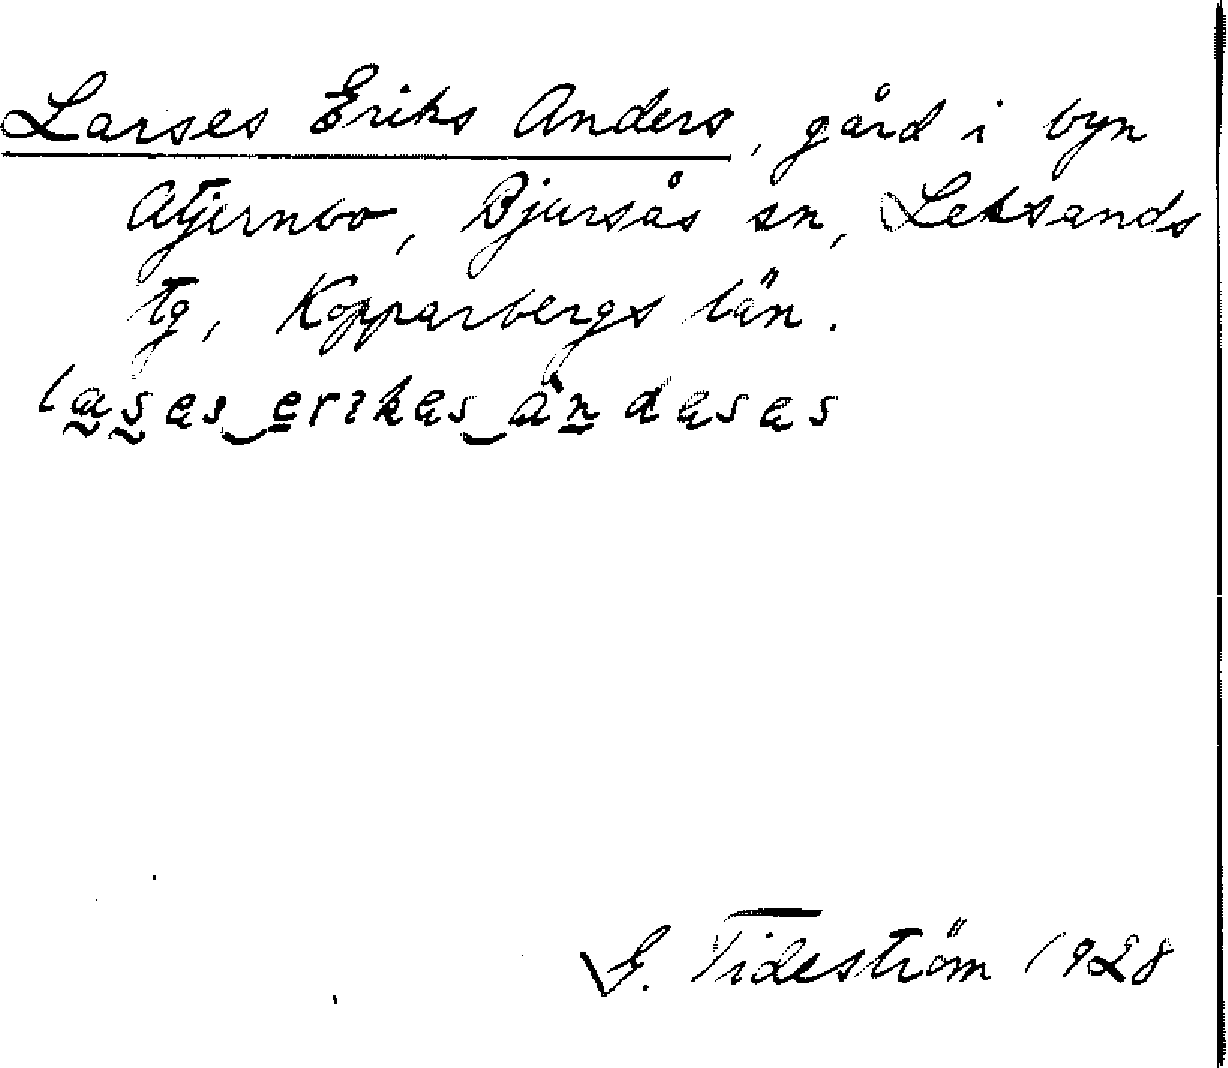 Larses Eriks Anders, gård i byn
Atjernbo, Bjursås sn, Leksands
tg, Kopparbergs län.
G. Tideström 1928